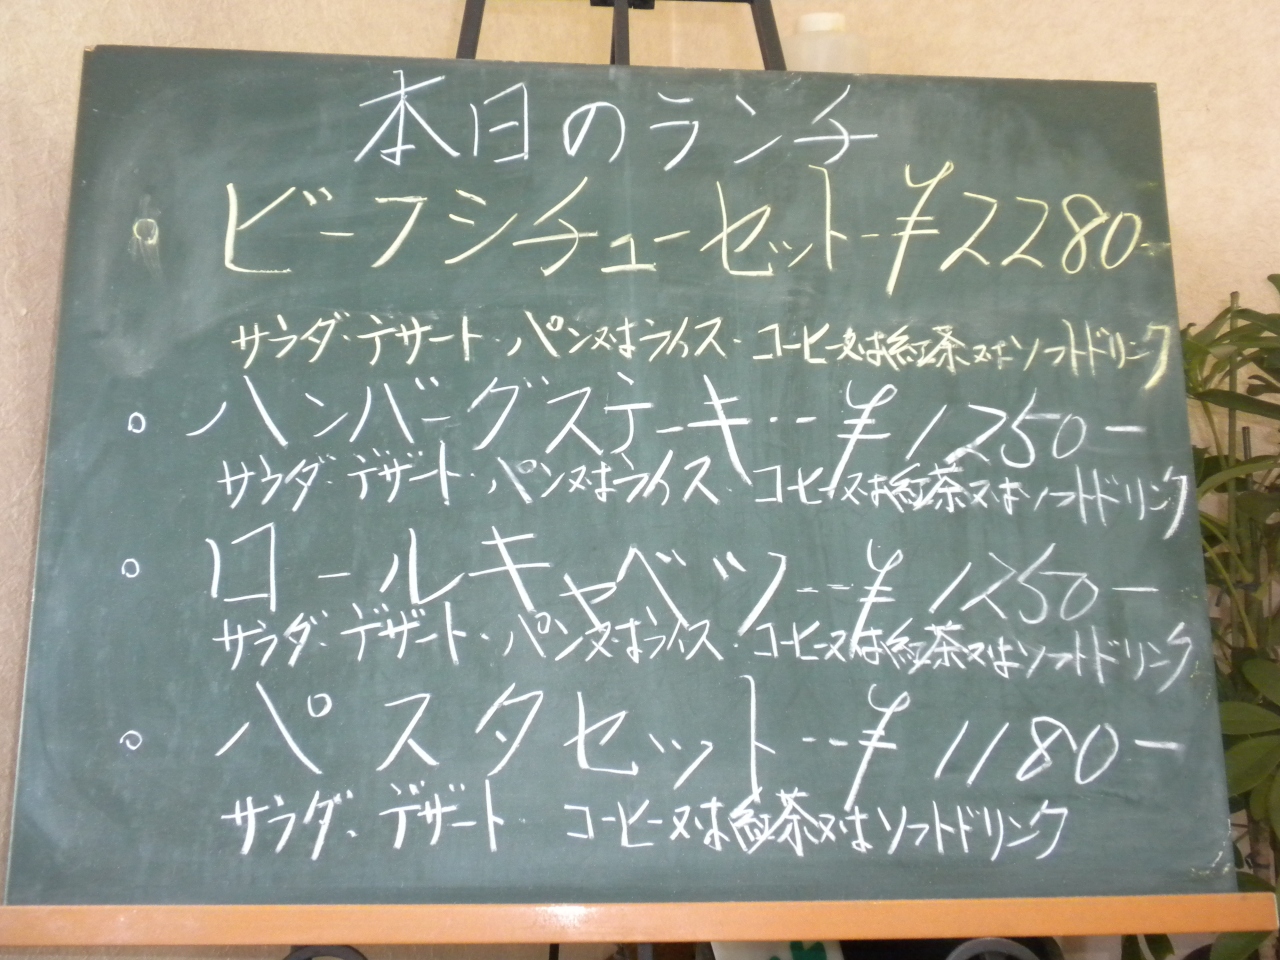 本日のランチ
。ビーフシチューセット-¥2280-
サラダ・デザート・パン又はライス・コーヒー又は紅茶又はソフトドリンク
。ハンバーグステーキ--¥1250-
サラダ・デザート・パン又はライス・コーヒー又は紅茶又はソフトドリンク
。ロールキャベツ--¥1250-
サラダ・デザート・パン又はライス・コーヒー又は紅茶又はソフトドリンク
。パスタセット--¥1180-
サラダ・デザート・コーヒー又は紅茶又はソフトドリンク